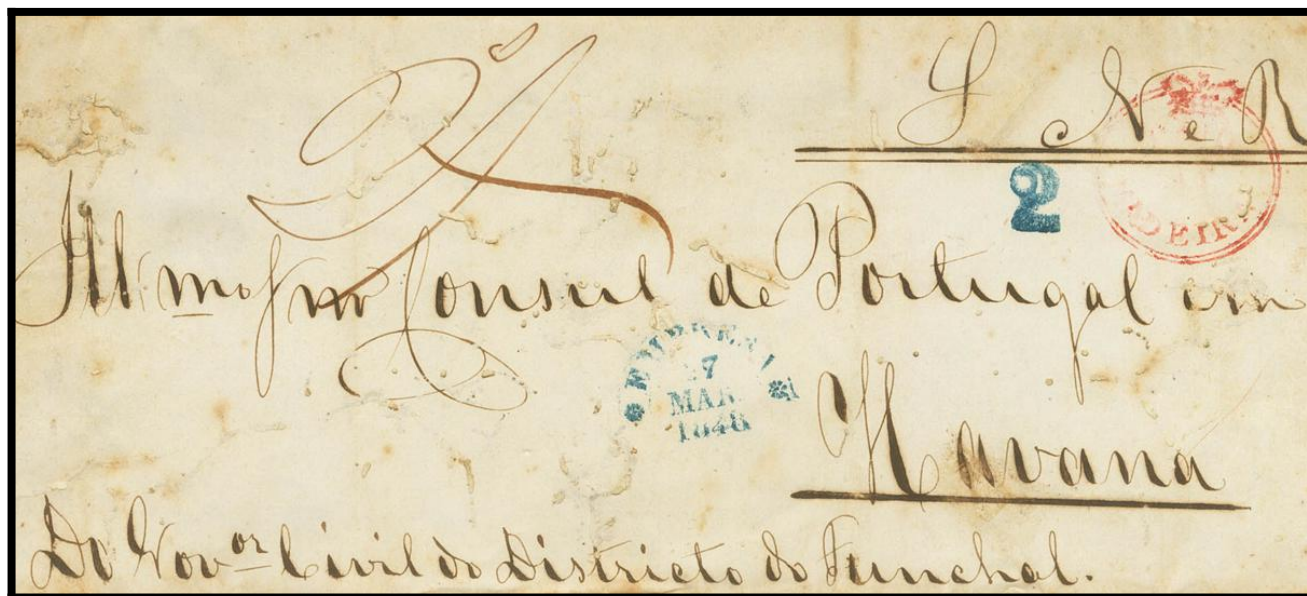 S N e R
2
MADEIRA
Illmo Snr Consul de Portugal em
EMPRESA
7
MAR
1848
Havana
Do Govor Civil do Districto do Funchal.